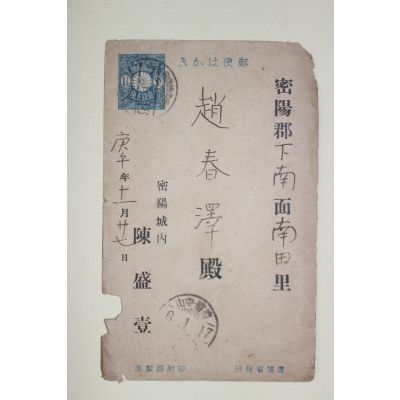 郵便はかき
密陽郡下南面南田里
趙春澤殿
密陽城內
陳盛壹
庚午年十一月廿七日
6.1.17
遞信省發行
印刷局製造